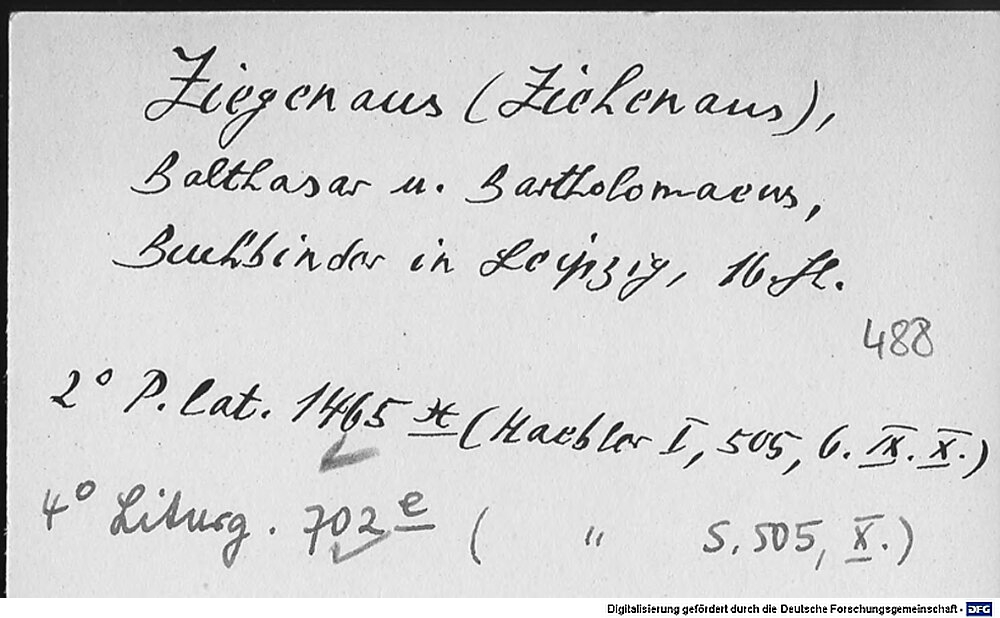 Ziegenaus (Ziehenaus),
Balthasar u. Bartholomaeus,
Buchbinder in Leipzig, 16. Jh.
488
2° P. lat. 1465 (Haebler I, 505, 6. IX. X.)
4° Liturg. 702 e ( " S. 505, X.)
Digitalisierung gefördert durch die Deutsche Forschungsgemeinschaft - DFG